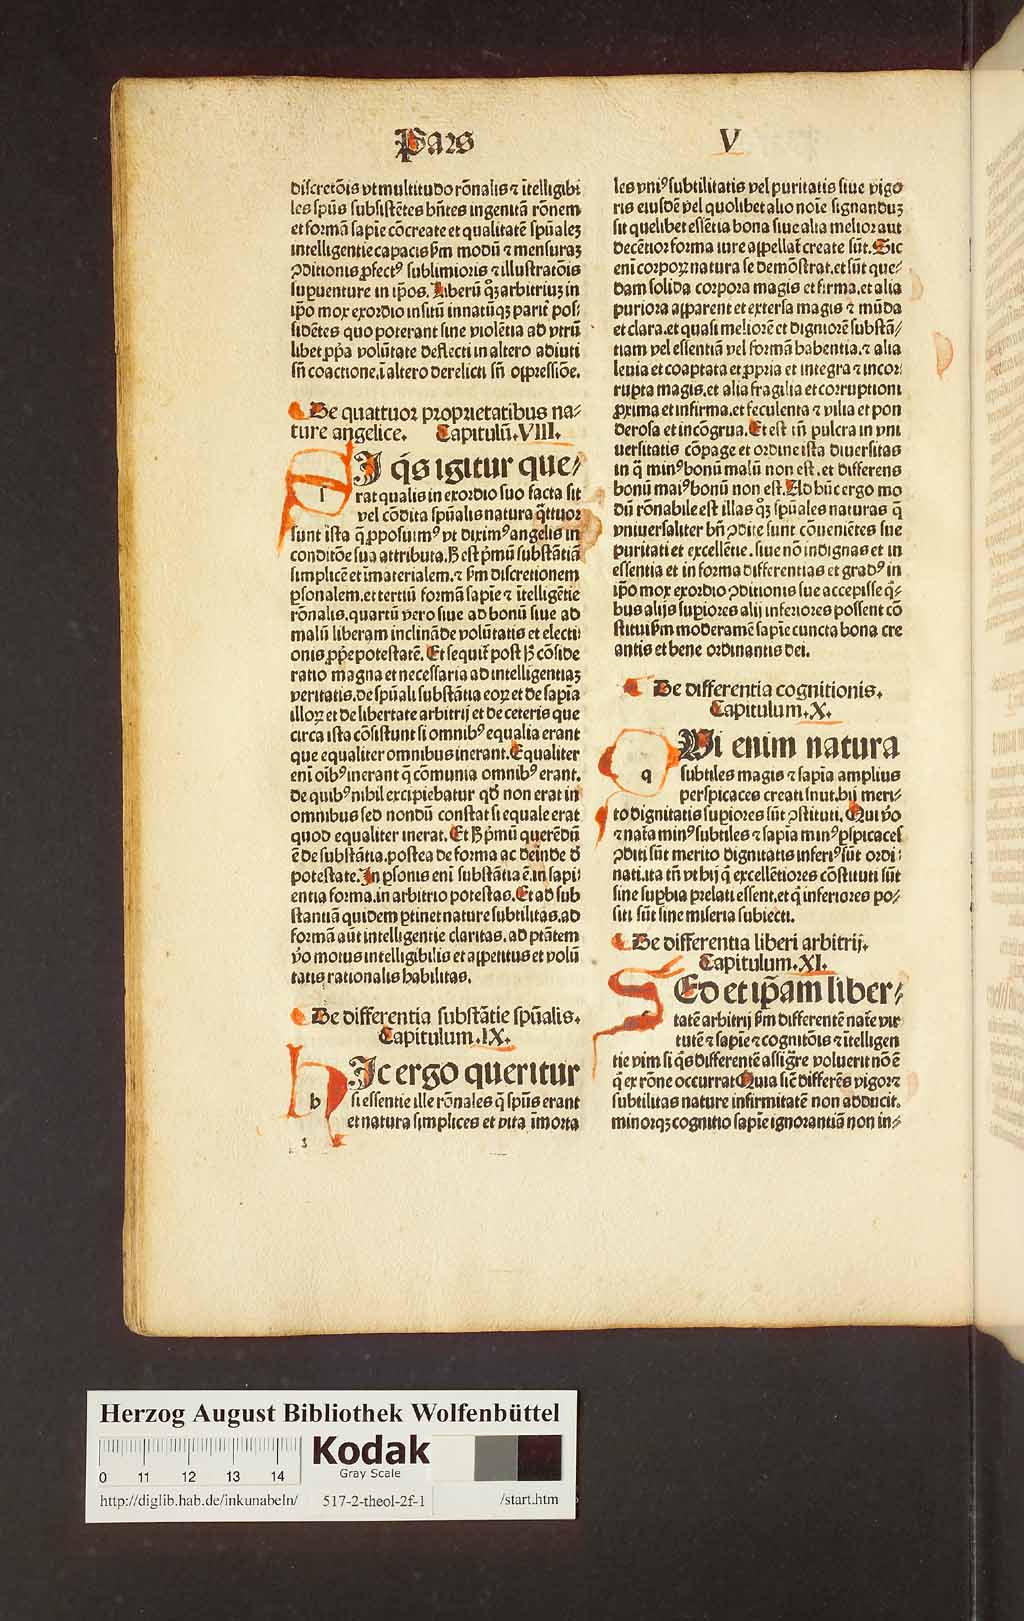 Pars
V
discretõis vt multitudo rõnalis ⁊ ĩtelligibi
les spũs subsistẽtes bñtes ingenitã rõnem
et formã sapie cõcreate et qualitatẽ spũalez
intelligentie capacis ẞm modũ ⁊ mensuraz
ꝯditionis ꝑfectꝰ sublimioris ⁊ illustratõis
supuenture in ip̃os. Liberũ qꝫ arbitriuꝫ in
ip̃o mox exordio insitũ innatũqꝫ parit̃ pos⸗
sidẽtes quo poterant sine violẽtia ad vtrũ
libet ꝓp̃a volũtate deflecti in altero adiuti
sñ coactione. ĩ altero derelicti sñ oppressiõe.
De quattuor proprietatibus na⸗
ture angelice. Capitulũ. VIII.
I q̃s igitur que⸗
rat qualis in exordio suo facta sit
vel cõdita spũalis natura q̃ttuor
sunt ista q̃ ꝓposuimꝰ vt diximꝰ angelis in
conditõe sua attributa. ẞ est p̃mũ substãtiã
simplicẽ et ĩmaterialem. ⁊ ẞm discretionem
ꝑsonalem. et tertiũ formã sapiẽ ⁊ ĩtelligẽtie
rõnalis. quartũ vero siue ad bonũ siue ad
malũ liberam inclinãde volũtatis et electi⸗
onis ꝓp̃e potestatẽ. Et sequit̃ post ẞ cõside
ratio magna et necessaria ad intelligentiaꝫ
veritatis. de spũali substãtia eoꝝ et de sapia
illoꝝ et de libertate arbitrij et de ceteris que
circa ista cõsistunt si omnibꝰ equalia erant
que equaliter omnibus inerant. Equaliter
eni oĩbꝰ inerant q̃ cõmunia omnibꝰ erant.
de quibꝰ nihil excipiebatur qđ non erat in
omnibus sed nondũ constat si equale erat
quod equaliter inerat. Et ẞ p̃mũ querẽdũ
ẽ de substãtia. postea de forma ac deinde đ
potestate. In ꝑsonis eni substãtia ẽ. in sapi⸗
entia forma. in arbitrio potestas. Et ad sub
stantiã quidem ꝑtinet nature subtilitas. ad
formã aut intelligentie claritas. ad ptãtem
ṽo motus intelligibilis et appetitus et volũ
tatis rationalis habilitas.
De differentia substãtie spũalis.
Capitulum. IX.
h
Ic ergo queritur
si essentie ille rõnales q̃ spũs erant
et natura simplices et vita ĩmorta
les vniꝰ subtilitatis vel puritatis siue vigo
ris eiusdẽ vel quolibet alio noĩe signanduꝫ
sit quelibet essẽtia bona siue alia melior aut
decẽtior forma iure appellat̃ create sũt. Sic
eni corpoꝝ natura se demõstrat. et sũt que⸗
dam solida corpora magis et firma. et alia
puriora apparent et extersa magis ⁊ mũda
et clara. et quasi meliorẽ et digniorẽ substã⸗
tiam vel essentiã vel formã habentia. ⁊ alia
leuia et coaptata et ꝓpria et integra ⁊ incor⸗
rupta magis. et alia fragilia et corruptioni
ꝓxima et infirma. et feculenta ⁊ vilia et pon
derosa et incõgrua. Et est iñ pulcra in vni
uersitatis cõpage et ordine ista diuersitas
in q̃ minꝰ bonũ malũ non est. et differens
bonũ maiꝰ bonũ non est. Ad hũc ergo mo
dũ rõnabile est illas qꝫ spũales naturas q̃
vniuersaliter bñ ꝯdite sunt cõueniẽtes sue
puritati et excellẽtie. siue nõ indignas et in
essentia et in forma differentias et gradꝰ in
ip̃o mox exordio ꝯditionis sue accepisse q̃⸗
bus alijs suꝑiores alij inferiores possent cõ
stitui ẞm moderamẽ sapiẽ cuncta bona cre
antis et bene ordinantis dei.
De differentia cognitionis.
Capitulum. X.
q
Ui enim natura
subtiles magis ⁊ sapĩa amplius
perspicaces creati snut. hij meri⸗
to dignitatis suꝑiores sũt ꝯstituti. Qui ṽo
⁊ nat̃a minꝰ subtiles ⁊ sapia minꝰ ꝑspicaces
ꝯditi sũt merito dignitatis inferiꝰ sũt ordi⸗
nati. ita tñ vt hij q̃ excellẽtiores cõstituti sũt
sine suꝑbia prelati essent. et q̃ inferiores po⸗
siti sũt sine miseria subiecti.
De differentia liberi arbitrij.
Capitulum. XI.
s
Ed et ip̃am liber⸗
tatẽ arbitrij ẞm differentẽ nat̃e vir
tutẽ ⁊ sapiẽ ⁊ cognitõis ⁊ ĩtelligen
tie vim si q̃s differentẽ assig̃re voluerit nõ ẽ
q̃ ex rõne occurrat Quia sic̃ differẽs vigor ⁊
subtilitas nature infirmitatẽ non adducit.
minorqꝫ cognitio sapiẽ ignorantiã non in⸗
Herzog August Bibliothek Wolfenbüttel
Kodak
Gray Scale
0 11 12 13 14
http://diglib.hab.de/inkunabeln/ 517-2-theol-2f-1 /start.htm